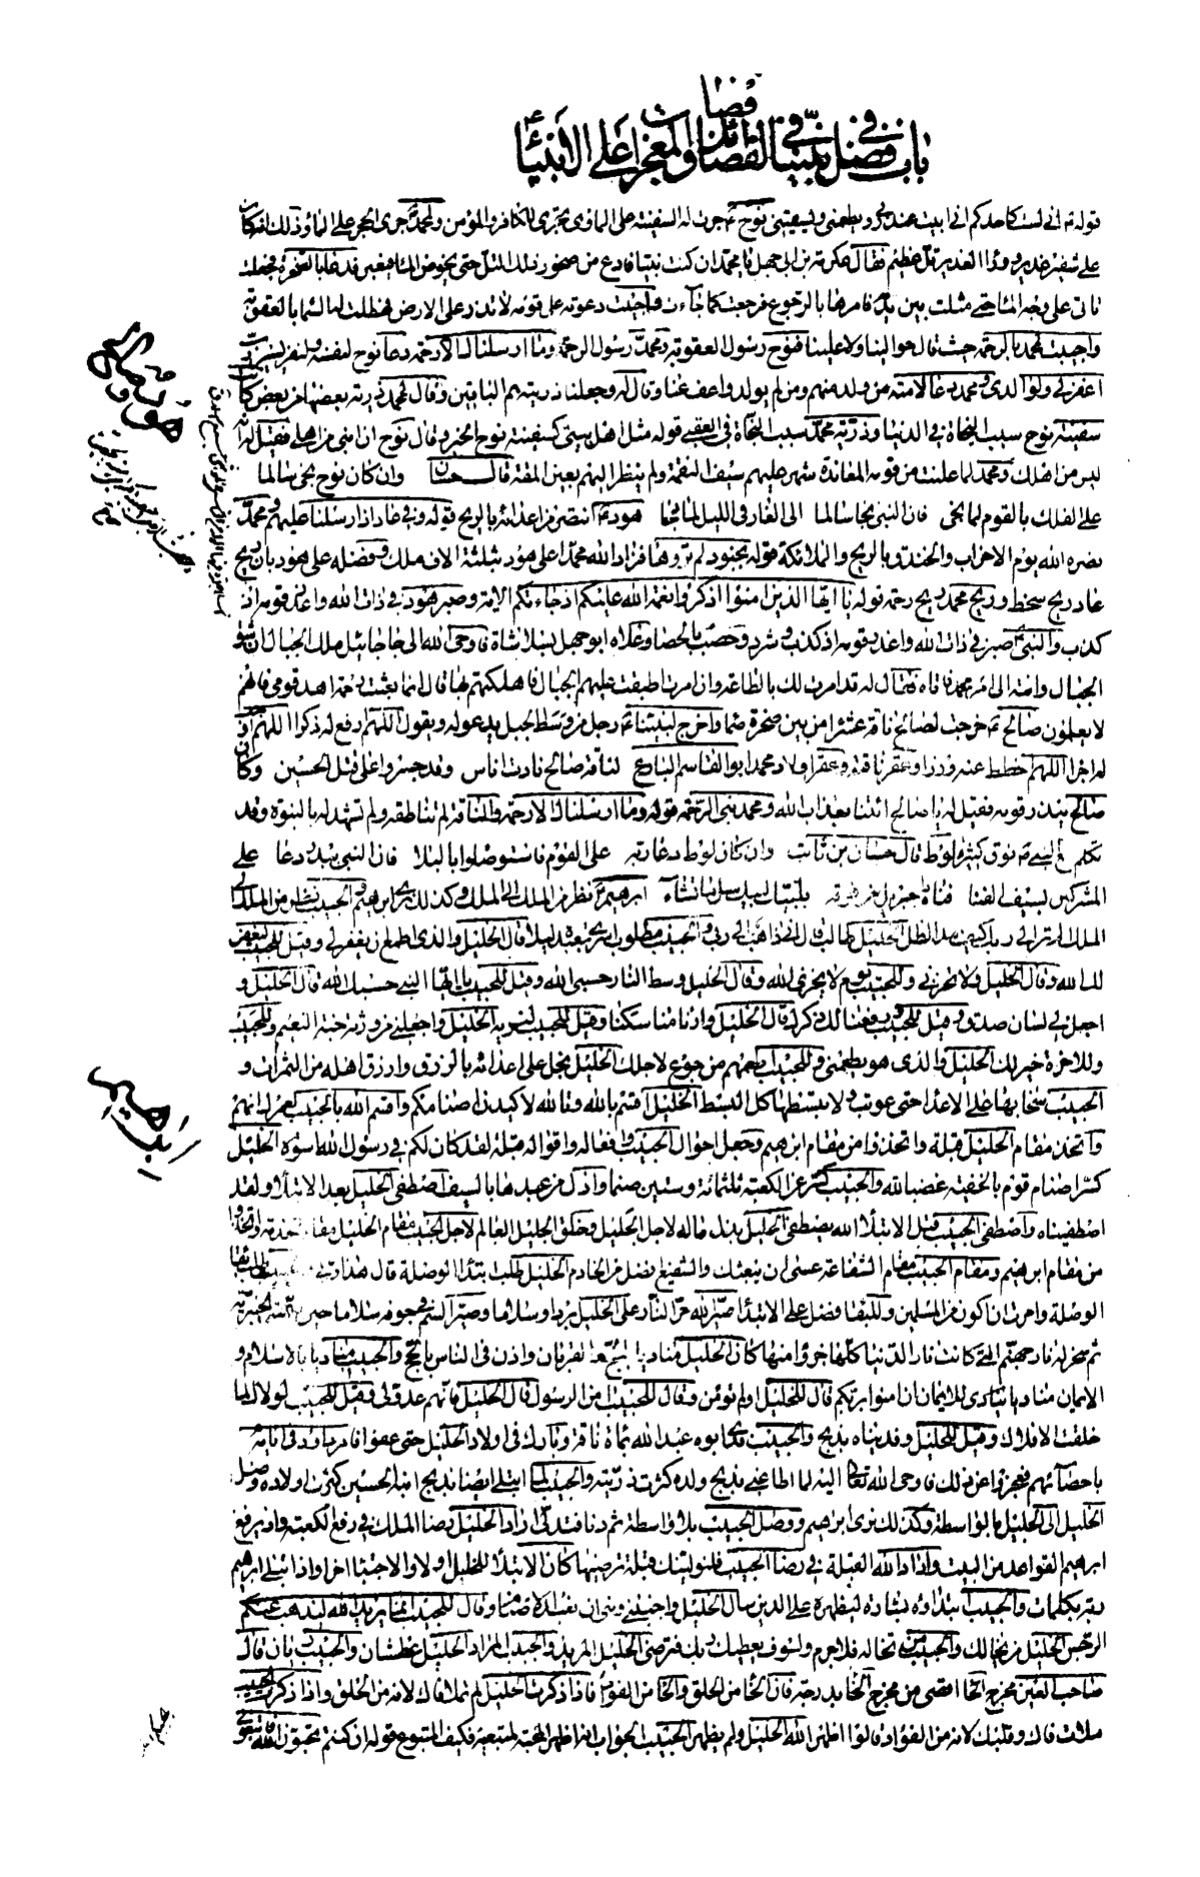 باب في فضل نبينا في الفضائل والمعجزات على الأنبياء
قوله ع اني لست كاحدكم اني ابيت عند ربي ويطعمني ويسقيني نوح ع جرت له السفينة على الماء وهي تجري للكافر والمؤمن ولمحمد جرى الحجر على الماء وذلك انه كان
على شفير غدير ووراء الغدير تل عظيم فقال عكرمة بن ابي جهل يا محمد ان كنت نبيا فادع من صخور ذلك التل حتى يخوض الماء فيعبر فدعا بالصخرة فجعلت
تاتي على وجه الماء حتى مثلت بين يديه فامرها بالرجوع فرجعت كما جاءت واجيبت دعوته على قومه لا تذر على الارض فهطلت له السماء بالعقوبة
واجيبت لمحمد بالرحمة حيث قال حوالينا ولا علينا فنوح رسول العقوبة ومحمد رسول الرحمة وما ارسلناك الا رحمة دعا نوح لنفسه ولنفر يسير رب
اغفر لي ولوالدي ومحمد دعا لامته من ولد منهم ومن لم يولد واعف عنا وقال له وجعلنا ذريته هم الباقين وقال لمحمد ذرية بعضها من بعض كان
سفينة نوح سبب النجاة في الدنيا وذرية محمد سبب النجاة في العقبى قوله مثل اهل بيتي كسفينة نوح الخبر وقال نوح ان ابني من اهلي فقيل له انه
ليس من اهلك ومحمد لما علنت من قومه المعاندة شهر عليهم سيف النقمة ولم ينظر اليهم بعين المقة قال حسان وان كان نوح نجى سالما
على الفلك بالقوم لما نجى فان النبي نجا سالما الى الغار في الليل لما دجا هود ع انتصر من اعدائه بالريح قوله وفي عاد اذ ارسلنا عليهم ومحمد
نصره الله يوم الاحزاب والخندق بالريح والملائكة قوله بجنود لم تروها فزاد الله محمدا على هود بثلثة الاف ملك وفضله على هود بان ريح
عاد ريح سخط وريح محمد ريح رحمة قوله يا ايها الذين امنوا اذكروا نعمة الله عليكم اذ جاءتكم الاية وصبر هود في ذات الله واعذر قومه اذ
كذب والنبي صبر في ذات الله واعذر قومه اذ كذب وشرد وحصب بالحصا وعلاه ابو جهل بسلا شاة فاوحى الله الى جاجائيل ملك الجبال ان شق
الجبال وانته الى امر محمد فاتاه فقال له قد امرت لك بالطاعة فان امرت اطبقت عليهم الجبال فاهلكتهم بها قال انما بعثت رحمة اهد قومي فانهم
لا يعلمون صالح ع خرجت لصالح ناقة عشراء من بين صخرة صماء واخرج لنبينا ع رجل من وسط الجبل يدعو له ويقول اللهم ارفع له ذكرا اللهم اوجب
له اجرا اللهم احطط عنه وزرا وعقر ناقته وعقر اولاد محمد ابو القاسم البارع لناقة صالح نادت اناس وقد جسروا على قتل الحسين وكان
صالح ينذر قومه فقيل له يا صالح ائتنا بعذاب الله ومحمد نبي الرحمة قوله وما ارسلناك الا رحمة والناقة لم تناطقه ولم تشهد له بالنبوة وقد
تكلم مع النبي ع نوق كثيرة لوط قال حسان بن ثابت وان كان لوط دعا ربه على القوم فاستوصلوا بالبلا فان النبي ببدر دعا على
المشركين بسيف الفنا فناداه جبريل من فوقه بلبيك لبيك سل ما تشاء ابراهيم ع نظر من الملك الى الملك وكذلك نري ابراهيم والحبيب نظر من الملك الى
الملك الم تر الى ربك كيف مد الظل الخليل طالب قال اني ذاهب الى ربي والحبيب مطلوب اسرى بعبده ليلا قال الخليل والذي اطمع ان يغفر لي وقيل للحبيب ليغفر
لك الله وقال الخليل ولا تخزني وللحبيب يوم لا يخزي الله وقال الخليل وسط النار حسبي الله وقيل للحبيب يا ايها النبي حسبك الله قال الخليل و
اجعل لي لسان صدق وقيل للحبيب ورفعنا لك ذكرك قال الخليل وارنا مناسكنا وقيل للحبيب لنريه الخليل واجعلني من ورثة جنة النعيم وللحبيب
وللاخرة خير لك الخليل والذي هو يطعمني وللحبيب اطعمهم من جوع لاجلك الخليل بخل على اعدائه بالرزق وارزق اهله من الثمرات و
الحبيب سخا بها على الاعداء حتى عوتب ولا تبسطها كل البسط الخليل اقسم بالله وتالله لاكيدن اصنامكم واقسم الله بالحبيب لعمرك انهم
واتخذ مقام الخليل قبلة واتخذوا من مقام ابرهيم وجعل احوال الحبيب وافعاله واقواله قبلة لقد كان لكم في رسول الله اسوة الخليل
كسر اصنام قوم بالخفية غضبا لله والحبيب كسر عن الكعبة ثلثمائة وستين صنما واذل من عبدها بالسيف اصطفى الخليل بعد الابتلا ولقد
اصطفيناه واصطفى الحبيب قبل الابتلا الله يصطفي الخليل بذل ماله لاجل الجليل وخلق الجليل العالم لاجل الحبيب مقام الخليل مقام الخدمة واتخذوا
من مقام ابرهيم ومقام الحبيب مقام الشفاعة عسى ان يبعثك والشفيع افضل من الخادم الخليل طلب ابتداء الوصلة قال هذا ربي
الوصلة وامرت ان اكون من المسلمين وللبقا فضل على الابتدا صير الله حر النار على الخليل بردا وسلاما وصير السم في جوفه سلاما حين سمته الخيبرية
ثم سخر له نار جهنم التي كانت نار الدنيا كلها جزؤا منها كان الخليل مناديا بالحج والقربان واذن في الناس بالحج والحبيب مناديا بالاسلام و
الايمان مناديا ينادي للايمان ان امنوا بربكم قال للخليل اولم تؤمن وقال للحبيب امن الرسول قال الخليل فانهم عدو لي وقيل للحبيب لولاك لما
خلقت الافلاك وقيل للخليل وفديناه بذبح والحبيب فدي ابوه عبد الله بمائة ناقة وبارك في اولاد الخليل حتى عفوا فامر داود في ايامه
باحصائهم فعجزوا عن ذلك فاوحى الله تعالى اليه لما اطاعني بذبح ولده كثرت ذريته والحبيب لما ابتلي ايضا بذبح ابنه الحسين كثرت اولاده وصل
الخليل الى الجليل بالواسطة وكذلك نري ابرهيم ووصل الحبيب بلا واسطة ثم دنا فتدلى اراد الخليل رضا الملك في رفع الكعبة واذ يرفع
ابرهيم القواعد من البيت واراد الله القبلة في رضا الحبيب فلنولينك قبلة ترضيها كان الابتلاء للخليل اولا والاجتباء اخرا واذ ابتلى ابرهيم
ربه بكلمات والحبيب ابتداؤه بشارة ليظهره على الدين سال الخليل واجنبني وبني ان نعبد الاصنام وقال للحبيب انما يريد الله ليذهب عنكم
الرجس الخليل من يخالك والحبيب من تخاله فلاجرم ولسوف يعطيك ربك فترضى الخليل المريد والحبيب المراد الخليل عطشان والحبيب ريان قال
صاحب العين مخرج الخاء اقصى من مخرج الحاء بدرجة فان الخاء من الحلق والحاء من الفواد فاذا ذكرت الخليل لم تملا فاك لانه من الحلق واذا ذكرت الحبيب
ملات فاك وقلبك لانه من الفواد قالوا اظهر الله الخليل ولم يظهر الحبيب الجواب انه اظهر المحبة لمتبعيه فكيف المتبوع قوله ان كنتم تحبون الله فاتبعوني
هود وصالح
ابراهيم